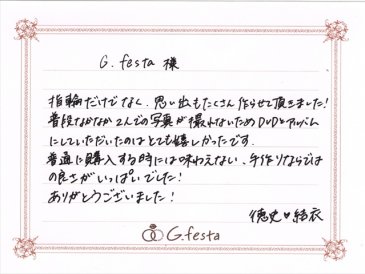 G.festa 様
指輪だけでなく、思い出もたくさん作らせて頂きました!
普段なかなか2人での写真が撮れないためDVDとアルバム
にしていただいたのはとても嬉しかったです。
普通に購入する時には味わえない、手作りならでは
の良さがいっぱいでした!
ありがとうございました!
徳史♥結衣
G.festa